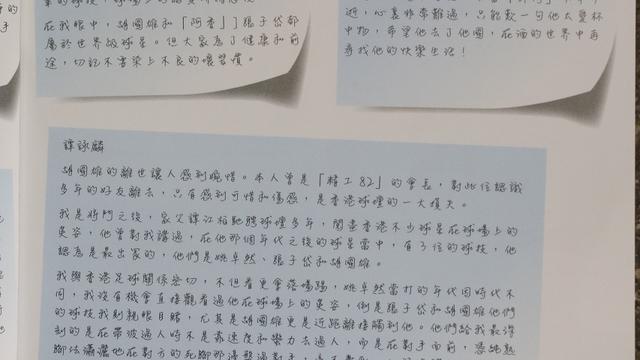 在我眼中，胡國雄和「阿香」張子岱都
屬於世界級球星。但大家為了健康和前
途，切記不害染上不良的壞習慣。
逝，心裏非常難過，只能歎一句他太賢杯
中物，希望他去了他國，在酒的世界中再
尋找他的快樂生活！
譚詠麟
胡國雄的離世讓人感到婉惜。本人曾是「精工82」的會長，對此位認識
多年的好友離去，只有感到可惜和傷感，是香港球壇的一大損失。
我是將門之後，家父譚江柏馳騁球壇多年，閱盡香港不少球星在球場上的
英姿，他曾對我講過，在他那個年代之後的球星當中，有3位的球技，他
認為是最出眾的，他們是姚卓然、張子岱和胡國雄。
我與香港足球關係密切，不但看更會落場踢，姚卓然當打的年代因時代不
同，我沒有機會直接觀看過他在球場上的英姿，倒是張子岱和胡國雄他們
的球技我則親眼目睹，尤其是胡國雄更是近距離接觸到他。他們給我最深
刻的是在帶波過人時不是靠速度和勞力去過人，而是在對手面前，憑純熟
腳法瀟灑地在對方的死腳那邊輕過對手